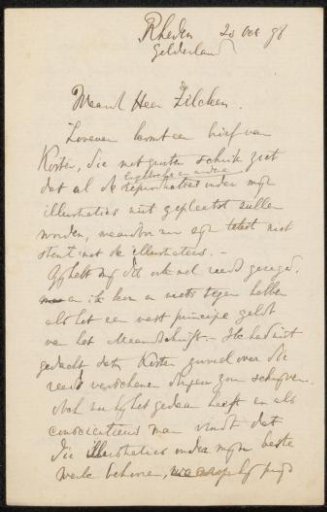 Rheden 20 Oct 98
Gelderland
Waarde Heer Zilcken.
Zooeven komt een brief van
Koster, die met grooten schrik ziet
dat al de reproducties onder mijn
illustraties niet geplaatst zullen
worden, waardoor nu zijn tekst niet
stemt met de illustraties. –
Gij hebt mij dit ook wel reeds gezegd.
en ik kon er niets tegen hebben
als het een vast principe geldt
van het Maandschrift. – Ik had niet
gedacht dat Koster zooveel over de
reeds verschenen dingen zou schrijven.
Doch nu hij het gedaan heeft en als
conscientieus man vindt dat
die illustraties onder mijn beste
werk behooren, hij